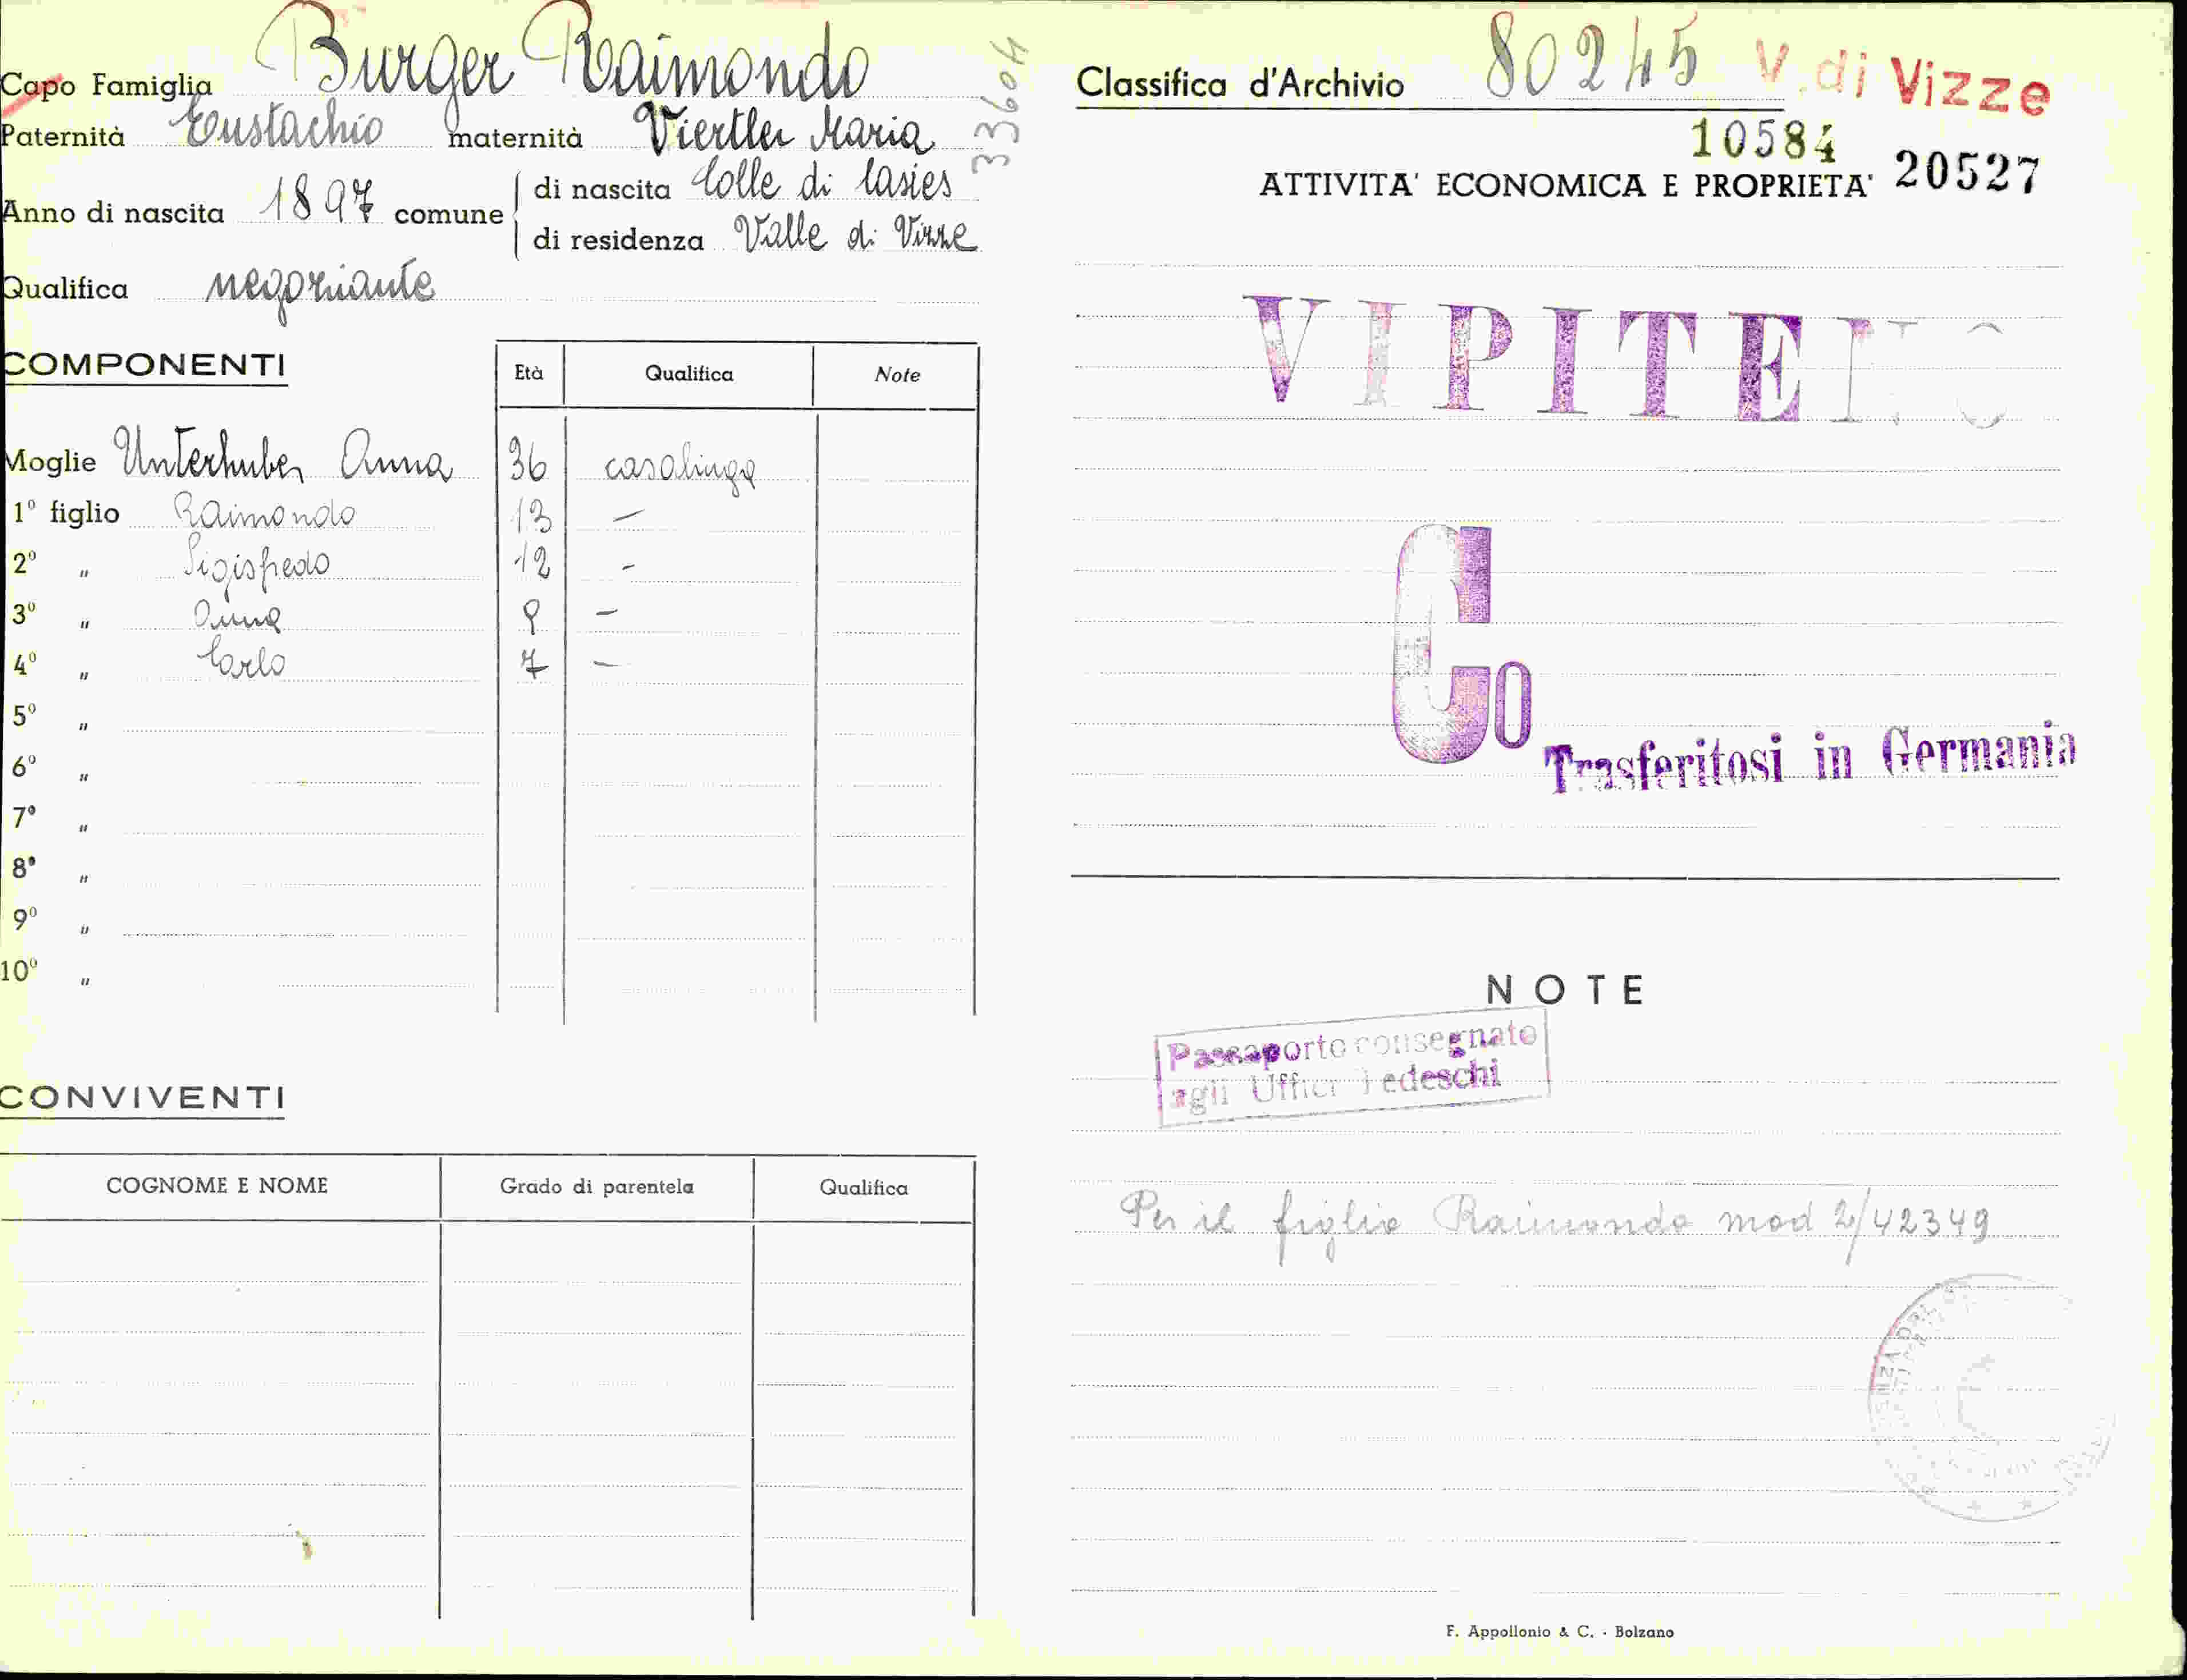 Capo Famiglia Burger Raimondo
Paternità Eustachio maternità Viertler Maria
33604
Anno di nascita 1897 comune di nascita Colle di Casies
di residenza Valle di Vizze
Qualifica negoziante
COMPONENTI Età Qualifica Note
Moglie Unterhuber Anna 36 casalinga
1º figlio Raimondo 13 —
2º " Sigisfredo 12 -
3º " Anna 9 —
4º " Carlo 7 —
5º "
6º "
7º "
8º "
9º "
10º "
CONVIVENTI
COGNOME E NOME Grado di parentela Qualifica
Classifica d'Archivio 80245 V. di Vizze
10584
ATTIVITA' ECONOMICA E PROPRIETA' 20527
VIPITENO
Co
Trasferitosi in Germania
NOTE
Passaporto consegnato
agli Uffici Tedeschi
Per il figlio Raimondo mod 2/42349
F. Appollonio & C. - Bolzano